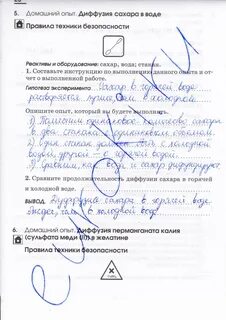 5. Домашний опыт. Диффузия сахара в воде
Правила техники безопасности
Реактивы и оборудование: сахар, вода; стакан.
1. Составьте инструкцию по выполнению данного опыта и отчет о выполненной работе.
Гипотеза эксперимента Сахар в горячей воде
растворяется лучше, чем в холодной
Опишите опыт, который вы будете выполнять.
1) Поместим одинаковое количество сахара
в два стакана с одинаковым объемом.
2) Один стакан должен быть с холодной
водой, другой с горячей водой.
3) Сравним, как вода и сахар диффузируют
2. Сравните продолжительность диффузии сахара в горячей
и холодной воде.
ВЫВОД. Диффузия сахара в горячей воде
в холодной воде.
6. Домашний опыт. Диффузия перманганата калия
(сульфата меди (II)) в желатине
Правила техники безопасности